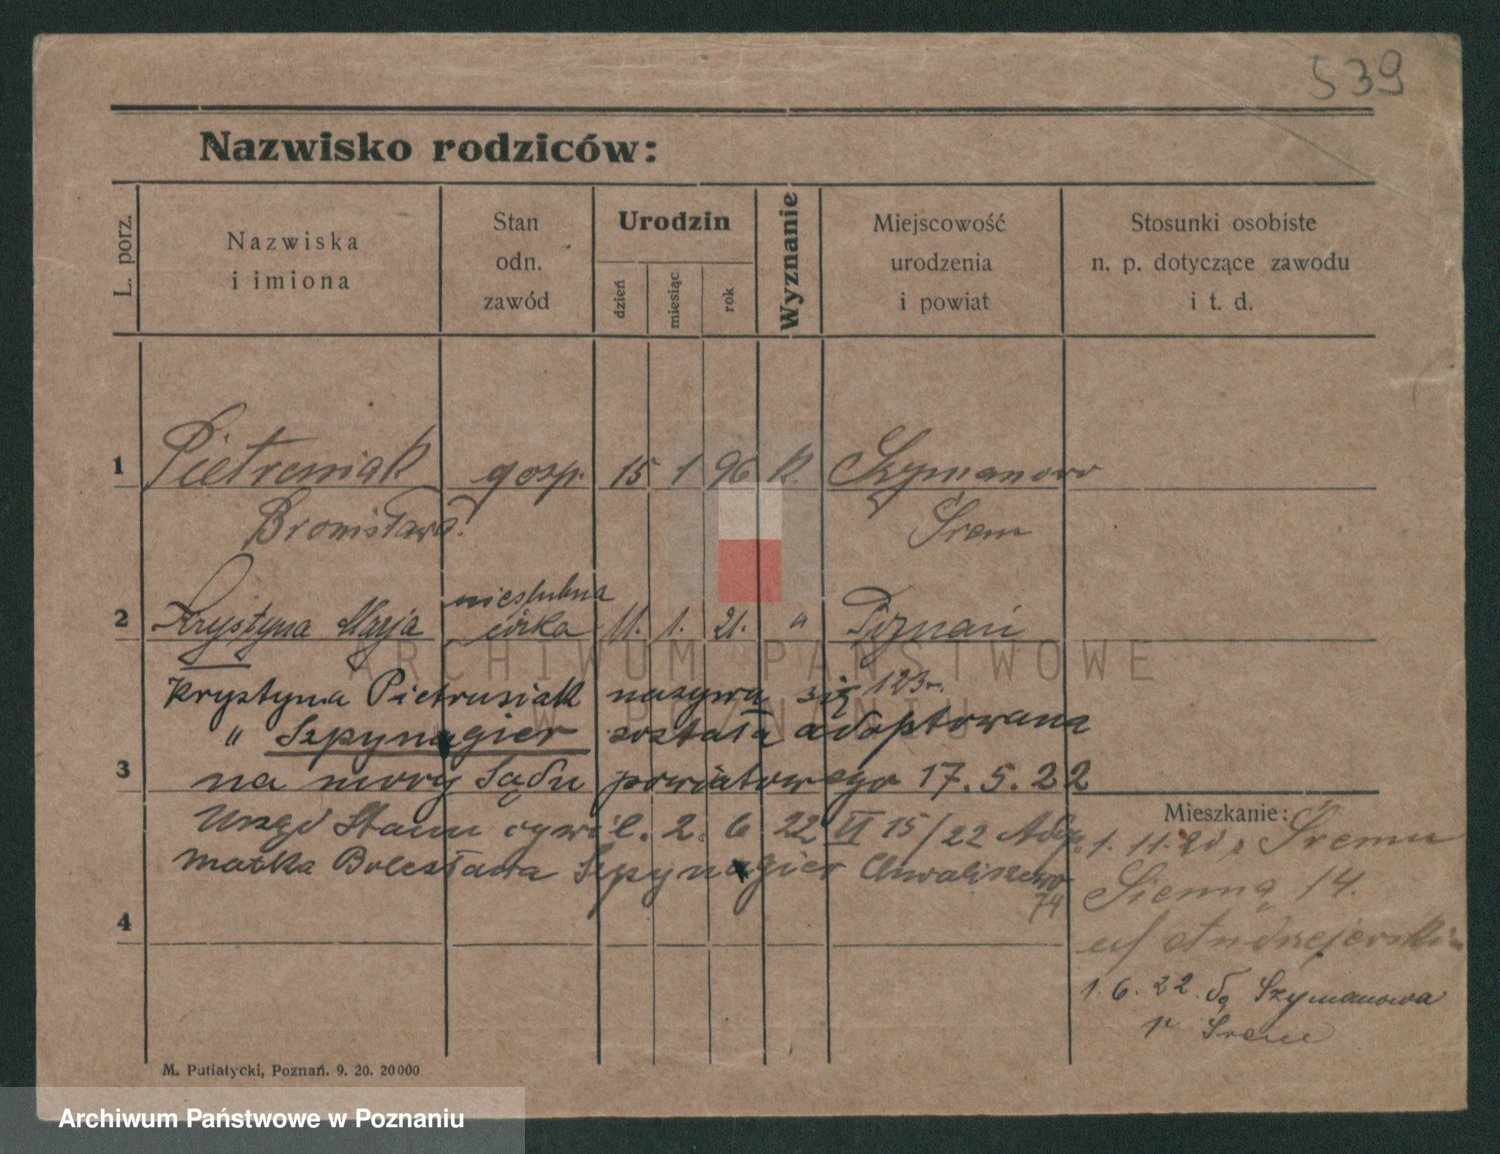 539
Nazwisko rodziców:
L. porz.
Nazwiska
i imiona
Stan
odn.
zawód
Urodzin
dzień
miesiąc
rok
Wyznanie
Miejscowość
urodzenia
i powiat
Stosunki osobiste
n. p. dotyczące zawodu
i t. d.
1 Pietrusiak gosp. 15 1 96 k. Szymanowo
Bronisława. Śrem
nieślubna
2 Krystyna Marja córka 11. 1. 21. " Poznań
ARCHIWUM PAŃSTWOWE
W POZNANIU
Krystyna Pietrusiak nazywa się
" Szpynagier została adoptowana
3 na mocy Sądu powiatowego 17. 5. 22
Urząd Stanu cywil. 2. 6 22 VI 15/22
Matka Bolesława Szpynagier Chwaliszewo
74
4
Mieszkanie:
1. 11. 20 Śremu
Sienna 14.
1. 6. 22. do Szymanowa
p Śrem
M. Putiatycki, Poznań. 9. 20. 20000
Archiwum Państwowe w Poznaniu